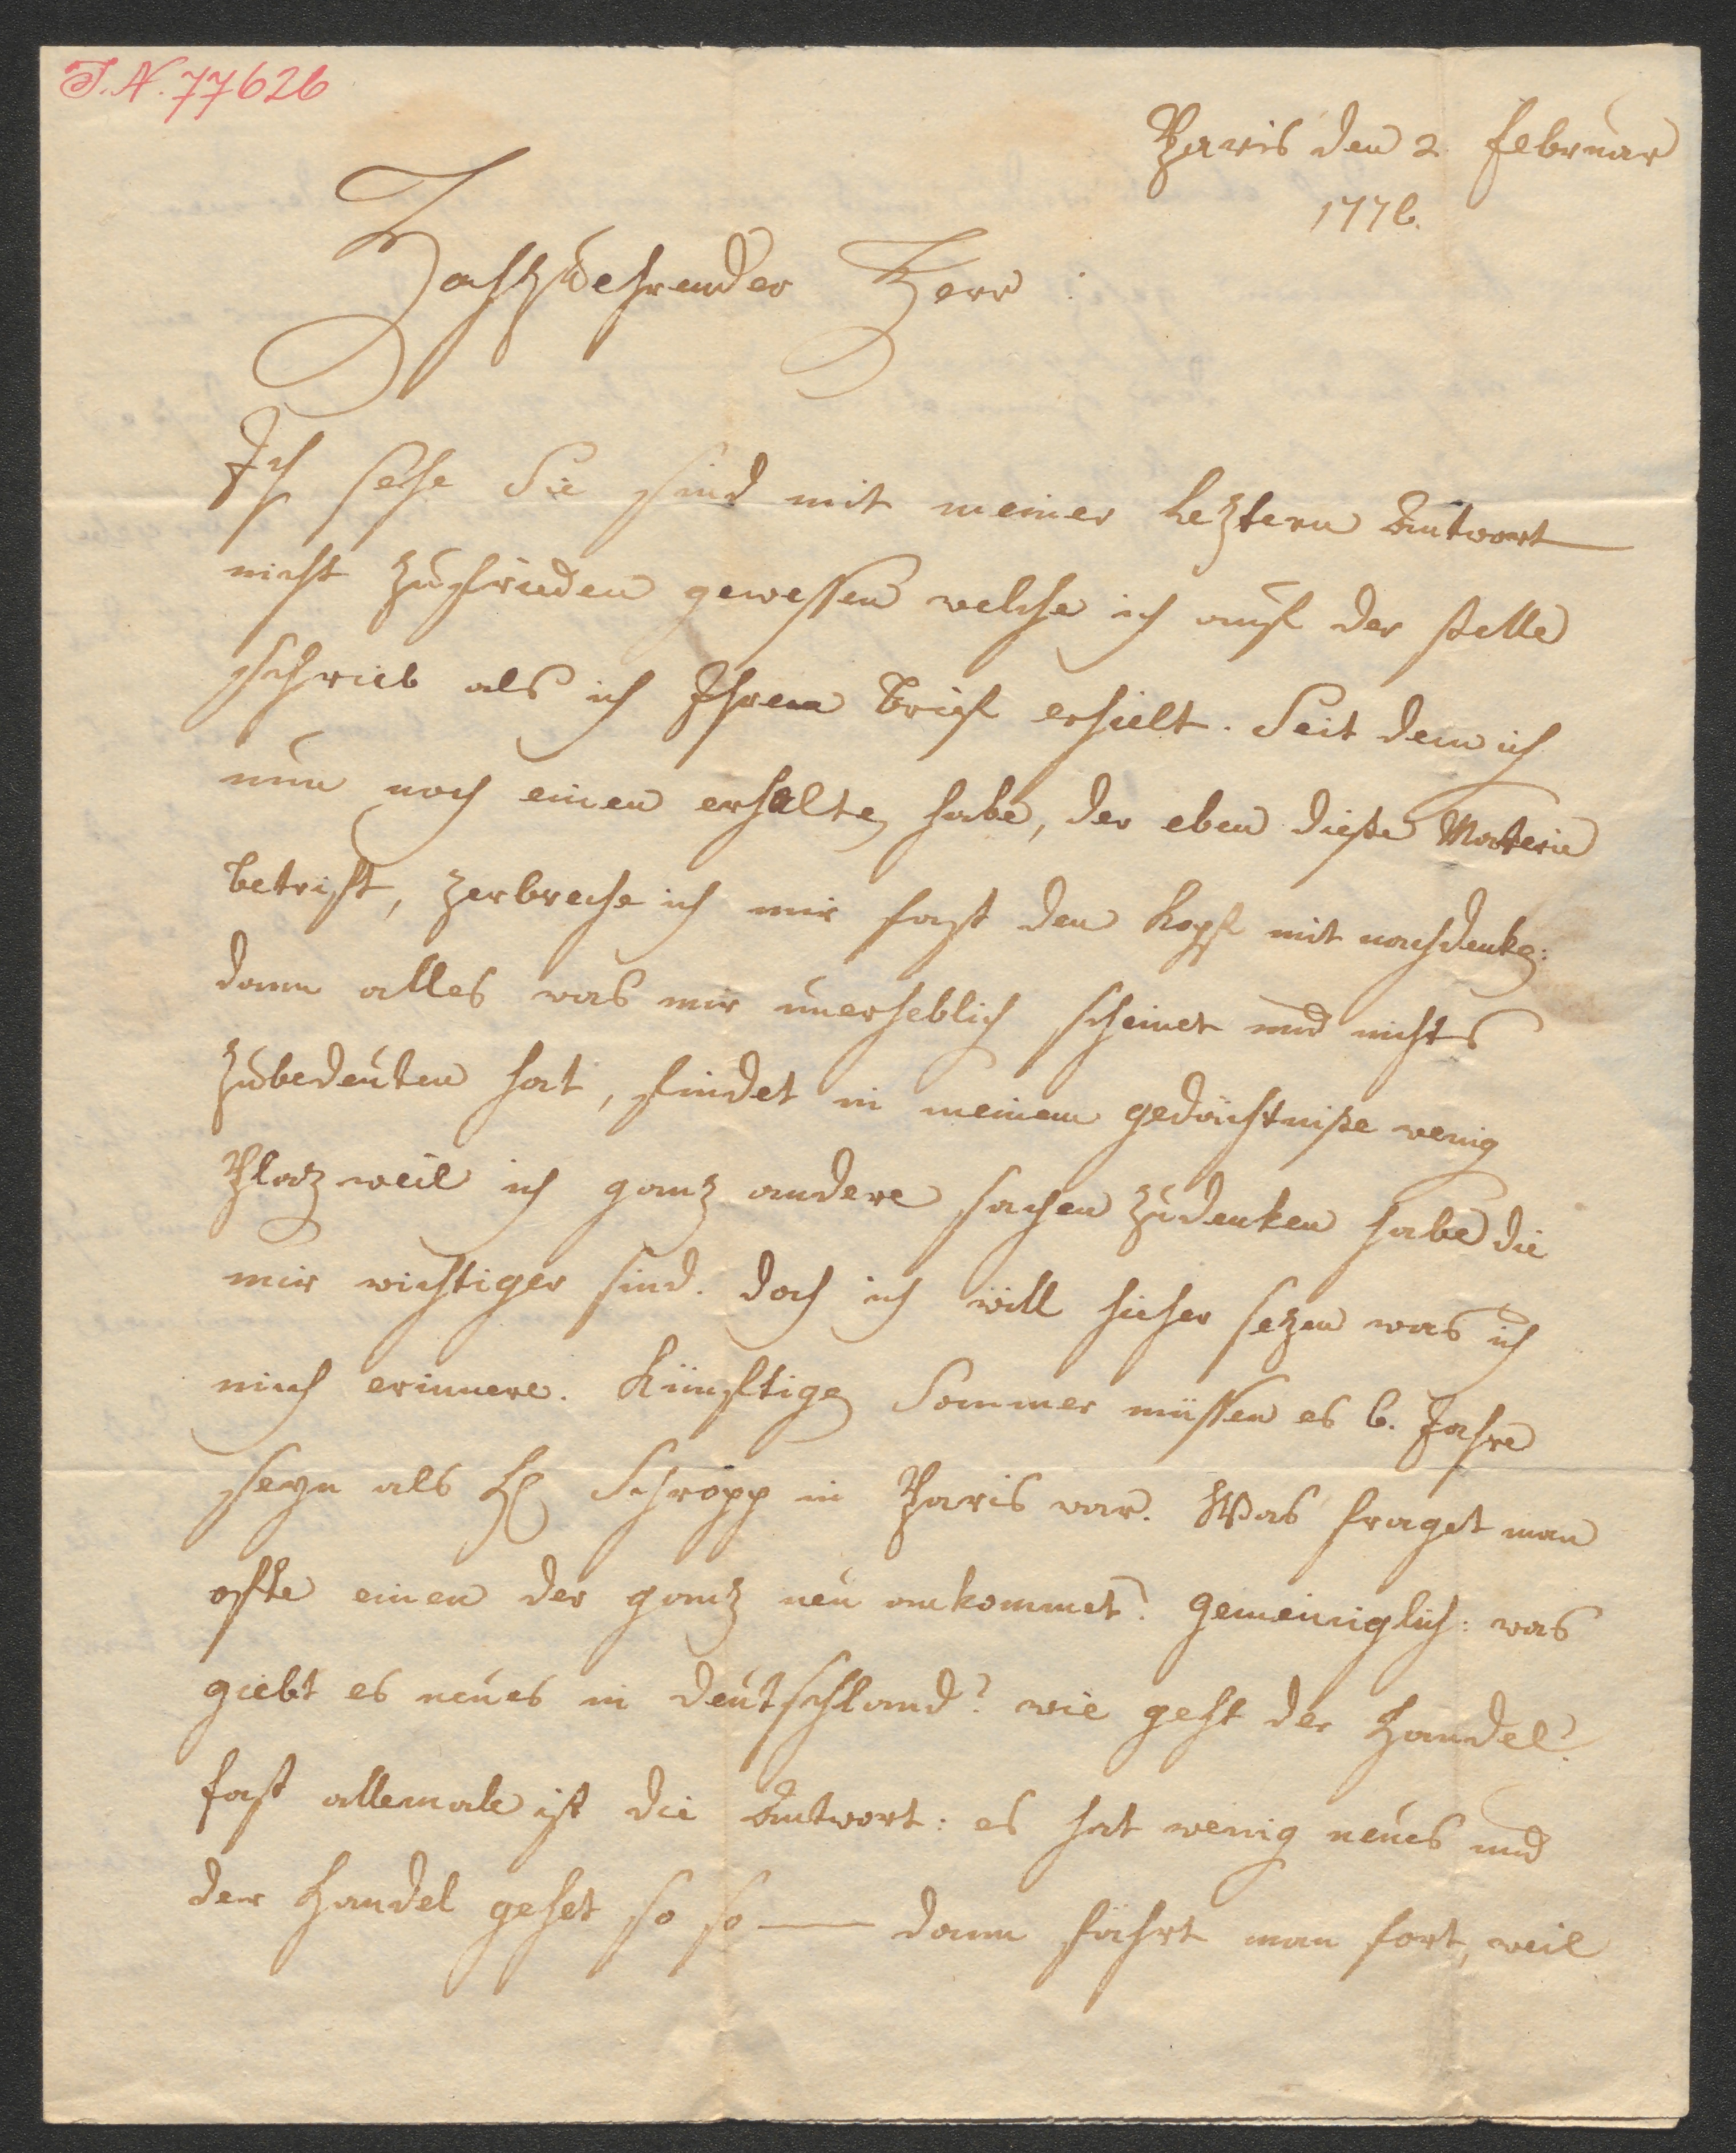 I.N. 77626
Paris den 2. Februar
1776.
Hochzuehrender Herr
Ich sehe Sie sind mit meiner leztern Antwort
nicht zufrieden gewessen welche ich auf der stelle
schrieb als ich Ihren Brief erhielt. Seit dem ich
nun noch einen erhalten habe, der eben dieße Materie
betrift, zerbreche ich mir fast den Kopf mit nachdenken:
dann alles was mir unerheblich scheinet und nichts
zubedeuten hat, findet in meinem gedächtniße wenig
Plaz weil ich ganz andere sachen zudenken habe die
mir wichtiger sind. doch ich will hieher sezen was ich
mich erinnere. Künftigen Sommer müssen es 6. Jahre
seyn als H. Schropp in Paris war. Was fraget man
ofte einen der ganz neu ankommet? gemeiniglich: was
giebt es neues in deutschland? wie geht der Handel?
fast allemale ist die Antwort: es hat wenig neues und
der Handel gehet so so — dann fährt man fort, weil